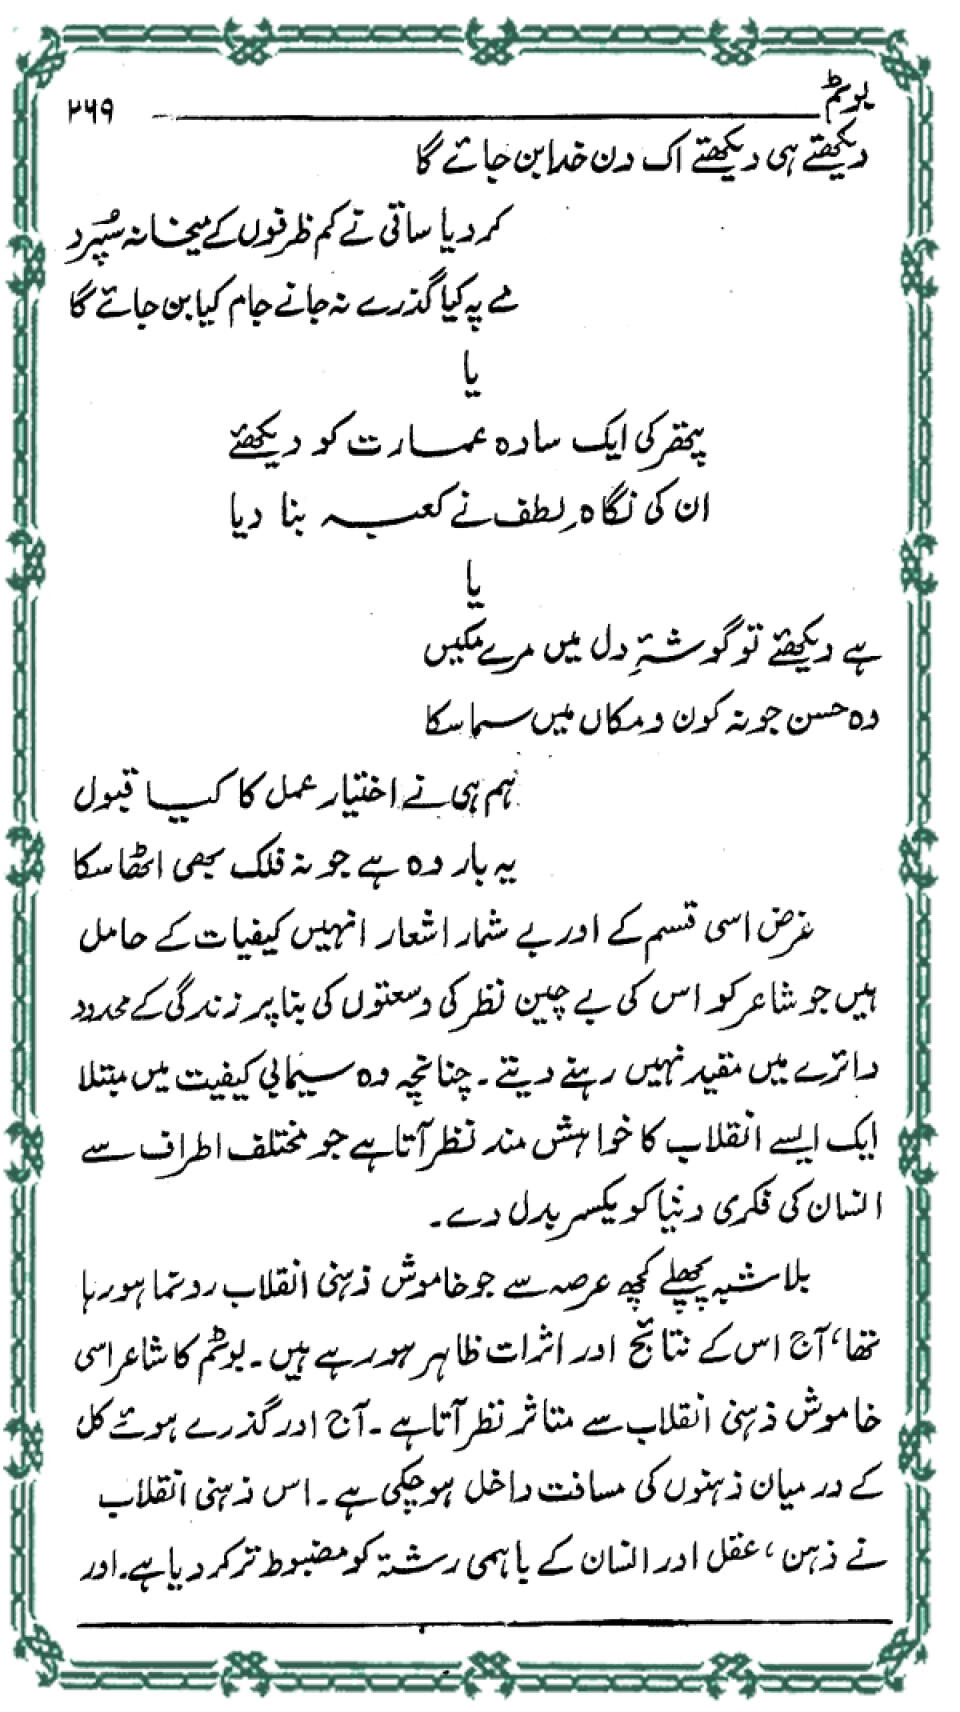 بوٹم
۲۶۹
دیکھتے ہی دیکھتے اک دن خدا بن جائے گا
کر دیا ساقی نے کم ظرفوں کے میخانہ سُپرد
مے پہ کیا گذرے نہ جانے جام کیا بن جائے گا
یا
پتھر کی ایک سادہ عمارت کو دیکھئے
ان کی نگاہِ لطف نے کعبہ بنا دیا
یا
ہے دیکھئے تو گوشۂ دل میں مرے مکیں
وہ حسن جو نہ کون و مکاں میں سما سکا
ہم ہی نے اختیار عمل کا کیا قبول
یہ بار وہ ہے جو نہ فلک بھی اٹھا سکا
غرض اسی قسم کے اور بے شمار اشعار انہیں کیفیات کے حامل
ہیں جو شاعر کو اس کی بے چین نظر کی وسعتوں کی بنا پر زندگی کے محدود
دائرے میں مقید نہیں رہنے دیتے ۔ چنانچہ وہ سیمابی کیفیت میں مبتلا
ایک ایسے انقلاب کا خواہش مند نظر آتا ہے جو مختلف اطراف سے
انسان کی فکری دنیا کو یکسر بدل دے ۔
بلا شبہ پچھلے کچھ عرصہ سے جو خاموش ذہنی انقلاب رونما ہو رہا
تھا، آج اس کے نتائج اور اثرات ظاہر ہو رہے ہیں ۔ بوٹم کا شاعر اسی
خاموش ذہنی انقلاب سے متاثر نظر آتا ہے ۔ آج اور گذرے ہوئے کل
کے درمیان ذہنوں کی مسافت داخل ہو چکی ہے ۔ اس ذہنی انقلاب
نے ذہن ، عقل اور انسان کے باہمی رشتہ کو مضبوط تر کر دیا ہے ۔ اور